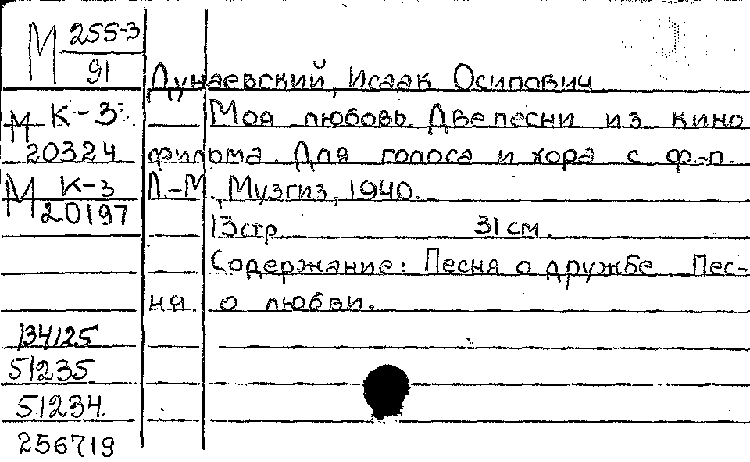 М 255-3
91
Дунаевский, Исаак Осипович
М К-3
20324
Моя любовь. Две песни из кино
фильма. Для голоса и хора с ф-п.
М К-3
20197
Л.-М., Музгиз, 1940.
13стр 31 см.
Содержание: Песня о дружбе Пес-
ня о любви.
134125
51235
51234.
256719